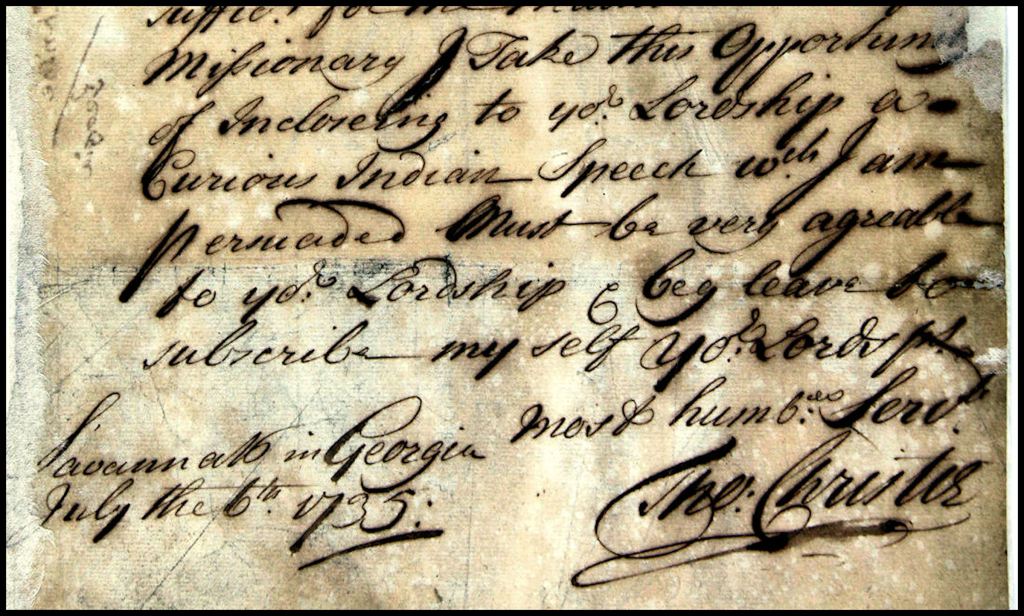 suffic.t for me
Missionary J Take this Opportun
of Incloseing to yo.r Lordship a
Curious Indian Speech w.ch J am
perswaded Must be very agreable
to yo.r Lordship & beg leave to
subscribe my self Yo.r Lordsps.
most humb.le Serv.t
Savannah in Georgia
July the 6th. 1735:
Tho: Christie